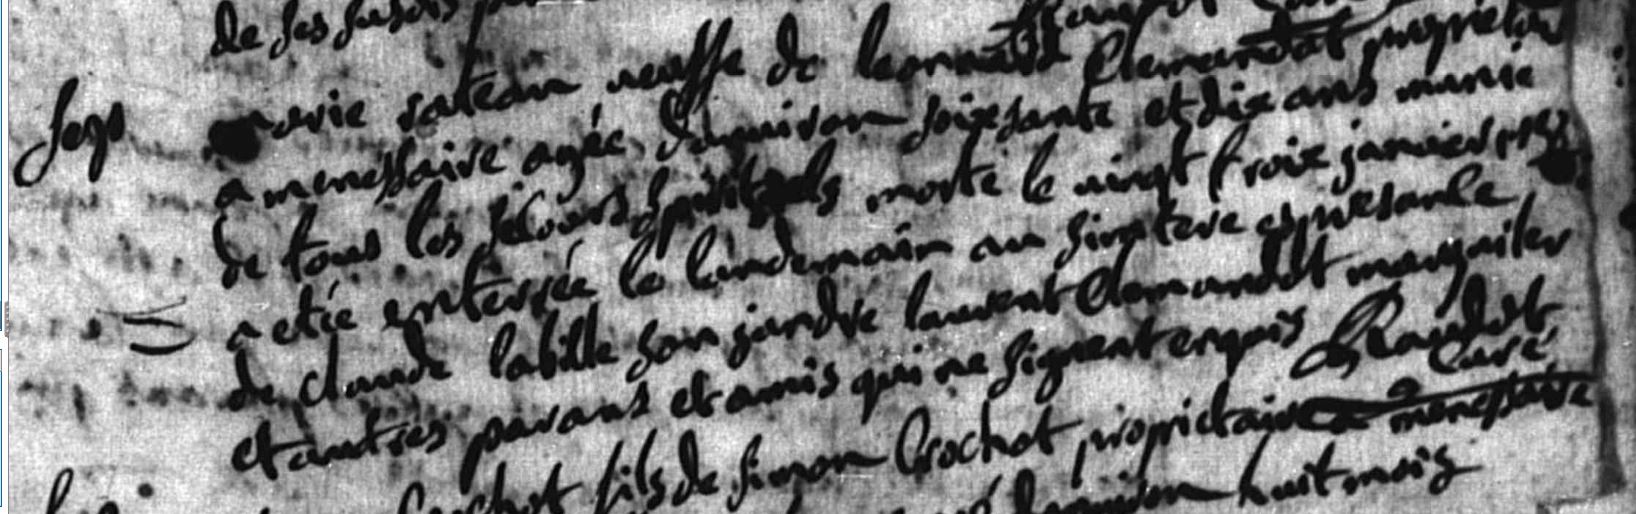 de ses
Sept
marie rateau veuffe de leonnard Clemandot proprietaire
a menessaire agée d'anviron soixsante et dix ans munie
de tous les secours spirituels morte le vingt troix janvier
a etée enterrée le landemain au simetere es presance
de claude labille son jandre laurent Clemandot marguiler
et autres parans et amis qui ne signent enquis Raudot
Curé
Crochot fils de simon Crochot proprietaire a menessaire
d'anviron huit mois